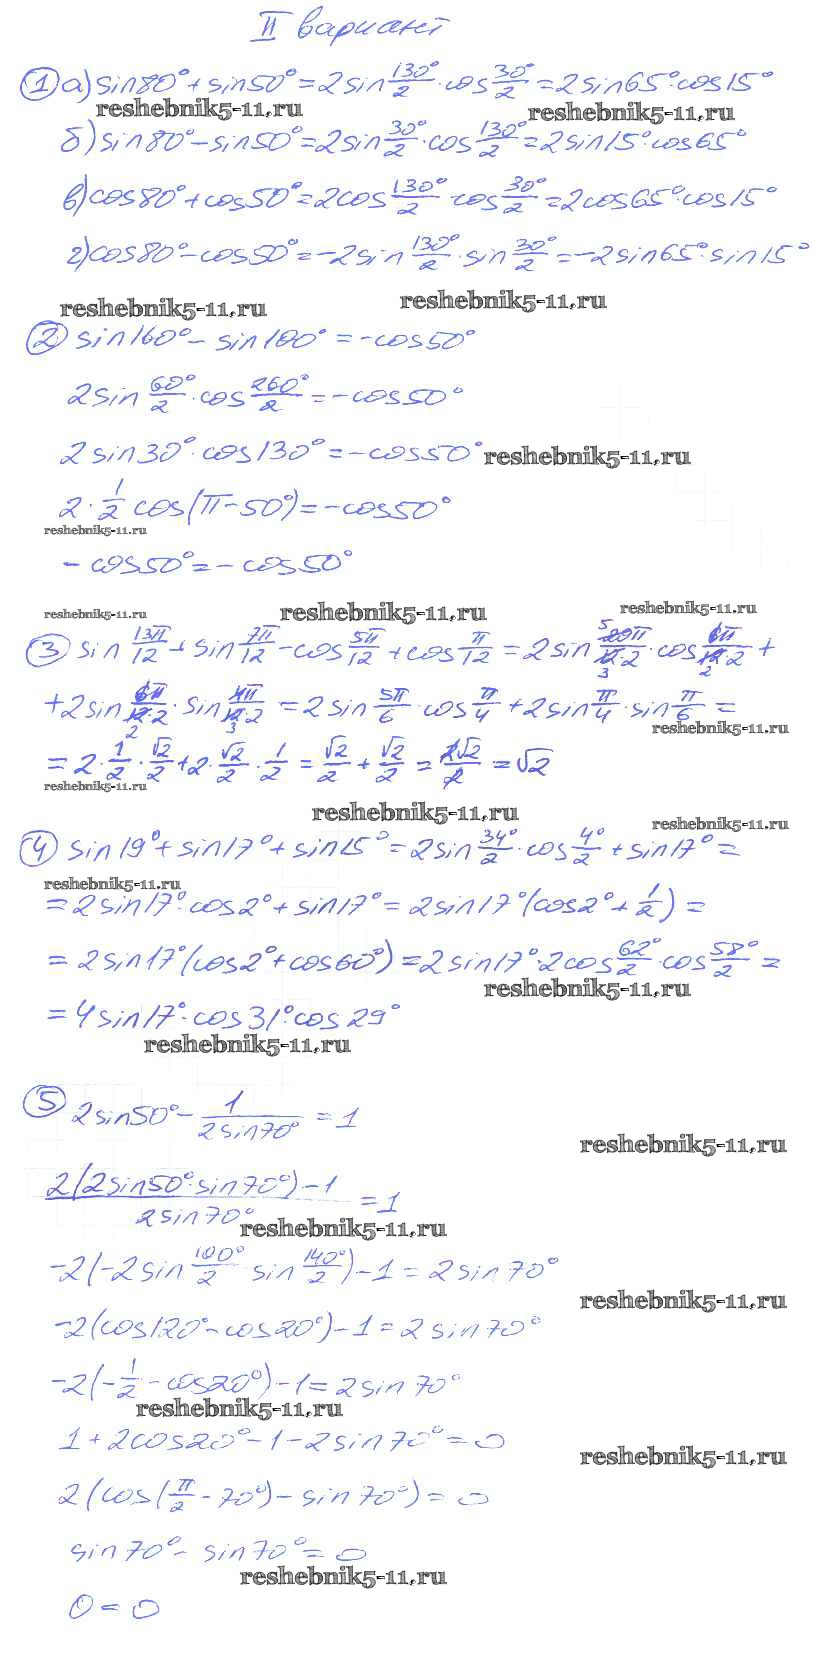 II вариант
1 а) sin80° + sin50° = 2sin 130°/2 · cos 30°/2 = 2sin65° · cos15°
reshebnik5-11.ru reshebnik5-11.ru
б) sin80° - sin50° = 2sin 30°/2 · cos 130°/2 = 2sin15° · cos65°
в) cos80° + cos50° = 2cos 130°/2 · cos 30°/2 = 2cos65° · cos15°
г) cos80° - cos50° = -2sin 130°/2 · sin 30°/2 = -2sin65° · sin15°
reshebnik5-11.ru reshebnik5-11.ru
2 sin160° - sin100° = -cos50°
2sin 60°/2 · cos 260°/2 = -cos50°
2sin30° · cos130° = -cos50°
reshebnik5-11.ru
2 · 1/2 cos(π - 50°) = -cos50°
reshebnik5-11.ru
-cos50° = -cos50°
reshebnik5-11.ru reshebnik5-11.ru reshebnik5-11.ru
3 sin 13π/12 + sin 7π/12 - cos 5π/12 + cos π/12 = 2sin 5 20π/12·2 3 · cos 6π/12·2 2 +
+ 2sin 6π/12·2 2 · sin 4π/12·2 3 = 2sin 5π/6 · cos π/4 + 2sin π/4 · sin π/6 =
reshebnik5-11.ru
= 2 · 1/2 · √2/2 + 2 · √2/2 · 1/2 = √2/2 + √2/2 = 2√2/2 = √2
reshebnik5-11.ru
reshebnik5-11.ru reshebnik5-11.ru
4 sin19° + sin17° + sin15° = 2sin 34°/2 · cos 4°/2 + sin17° =
reshebnik5-11.ru
= 2sin17° · cos2° + sin17° = 2sin17°(cos2° + 1/2) =
= 2sin17°(cos2° + cos60°) = 2sin17° · 2cos 62°/2 · cos 58°/2 =
reshebnik5-11.ru
= 4sin17° · cos31° · cos29°
reshebnik5-11.ru
5 2sin50° - 1/2sin70° = 1
reshebnik5-11.ru
2(2sin50° · sin70°) - 1/2sin70° = 1
reshebnik5-11.ru
-2(-2sin 100°/2 sin 140°/2) - 1 = 2sin70°
reshebnik5-11.ru
-2(cos120° - cos20°) - 1 = 2sin70°
-2(-1/2 - cos20°) - 1 = 2sin70°
reshebnik5-11.ru
1 + 2cos20° - 1 - 2sin70° = 0
reshebnik5-11.ru
2(cos(π/2 - 70°) - sin70°) = 0
sin70° - sin70° = 0
reshebnik5-11.ru
0 = 0